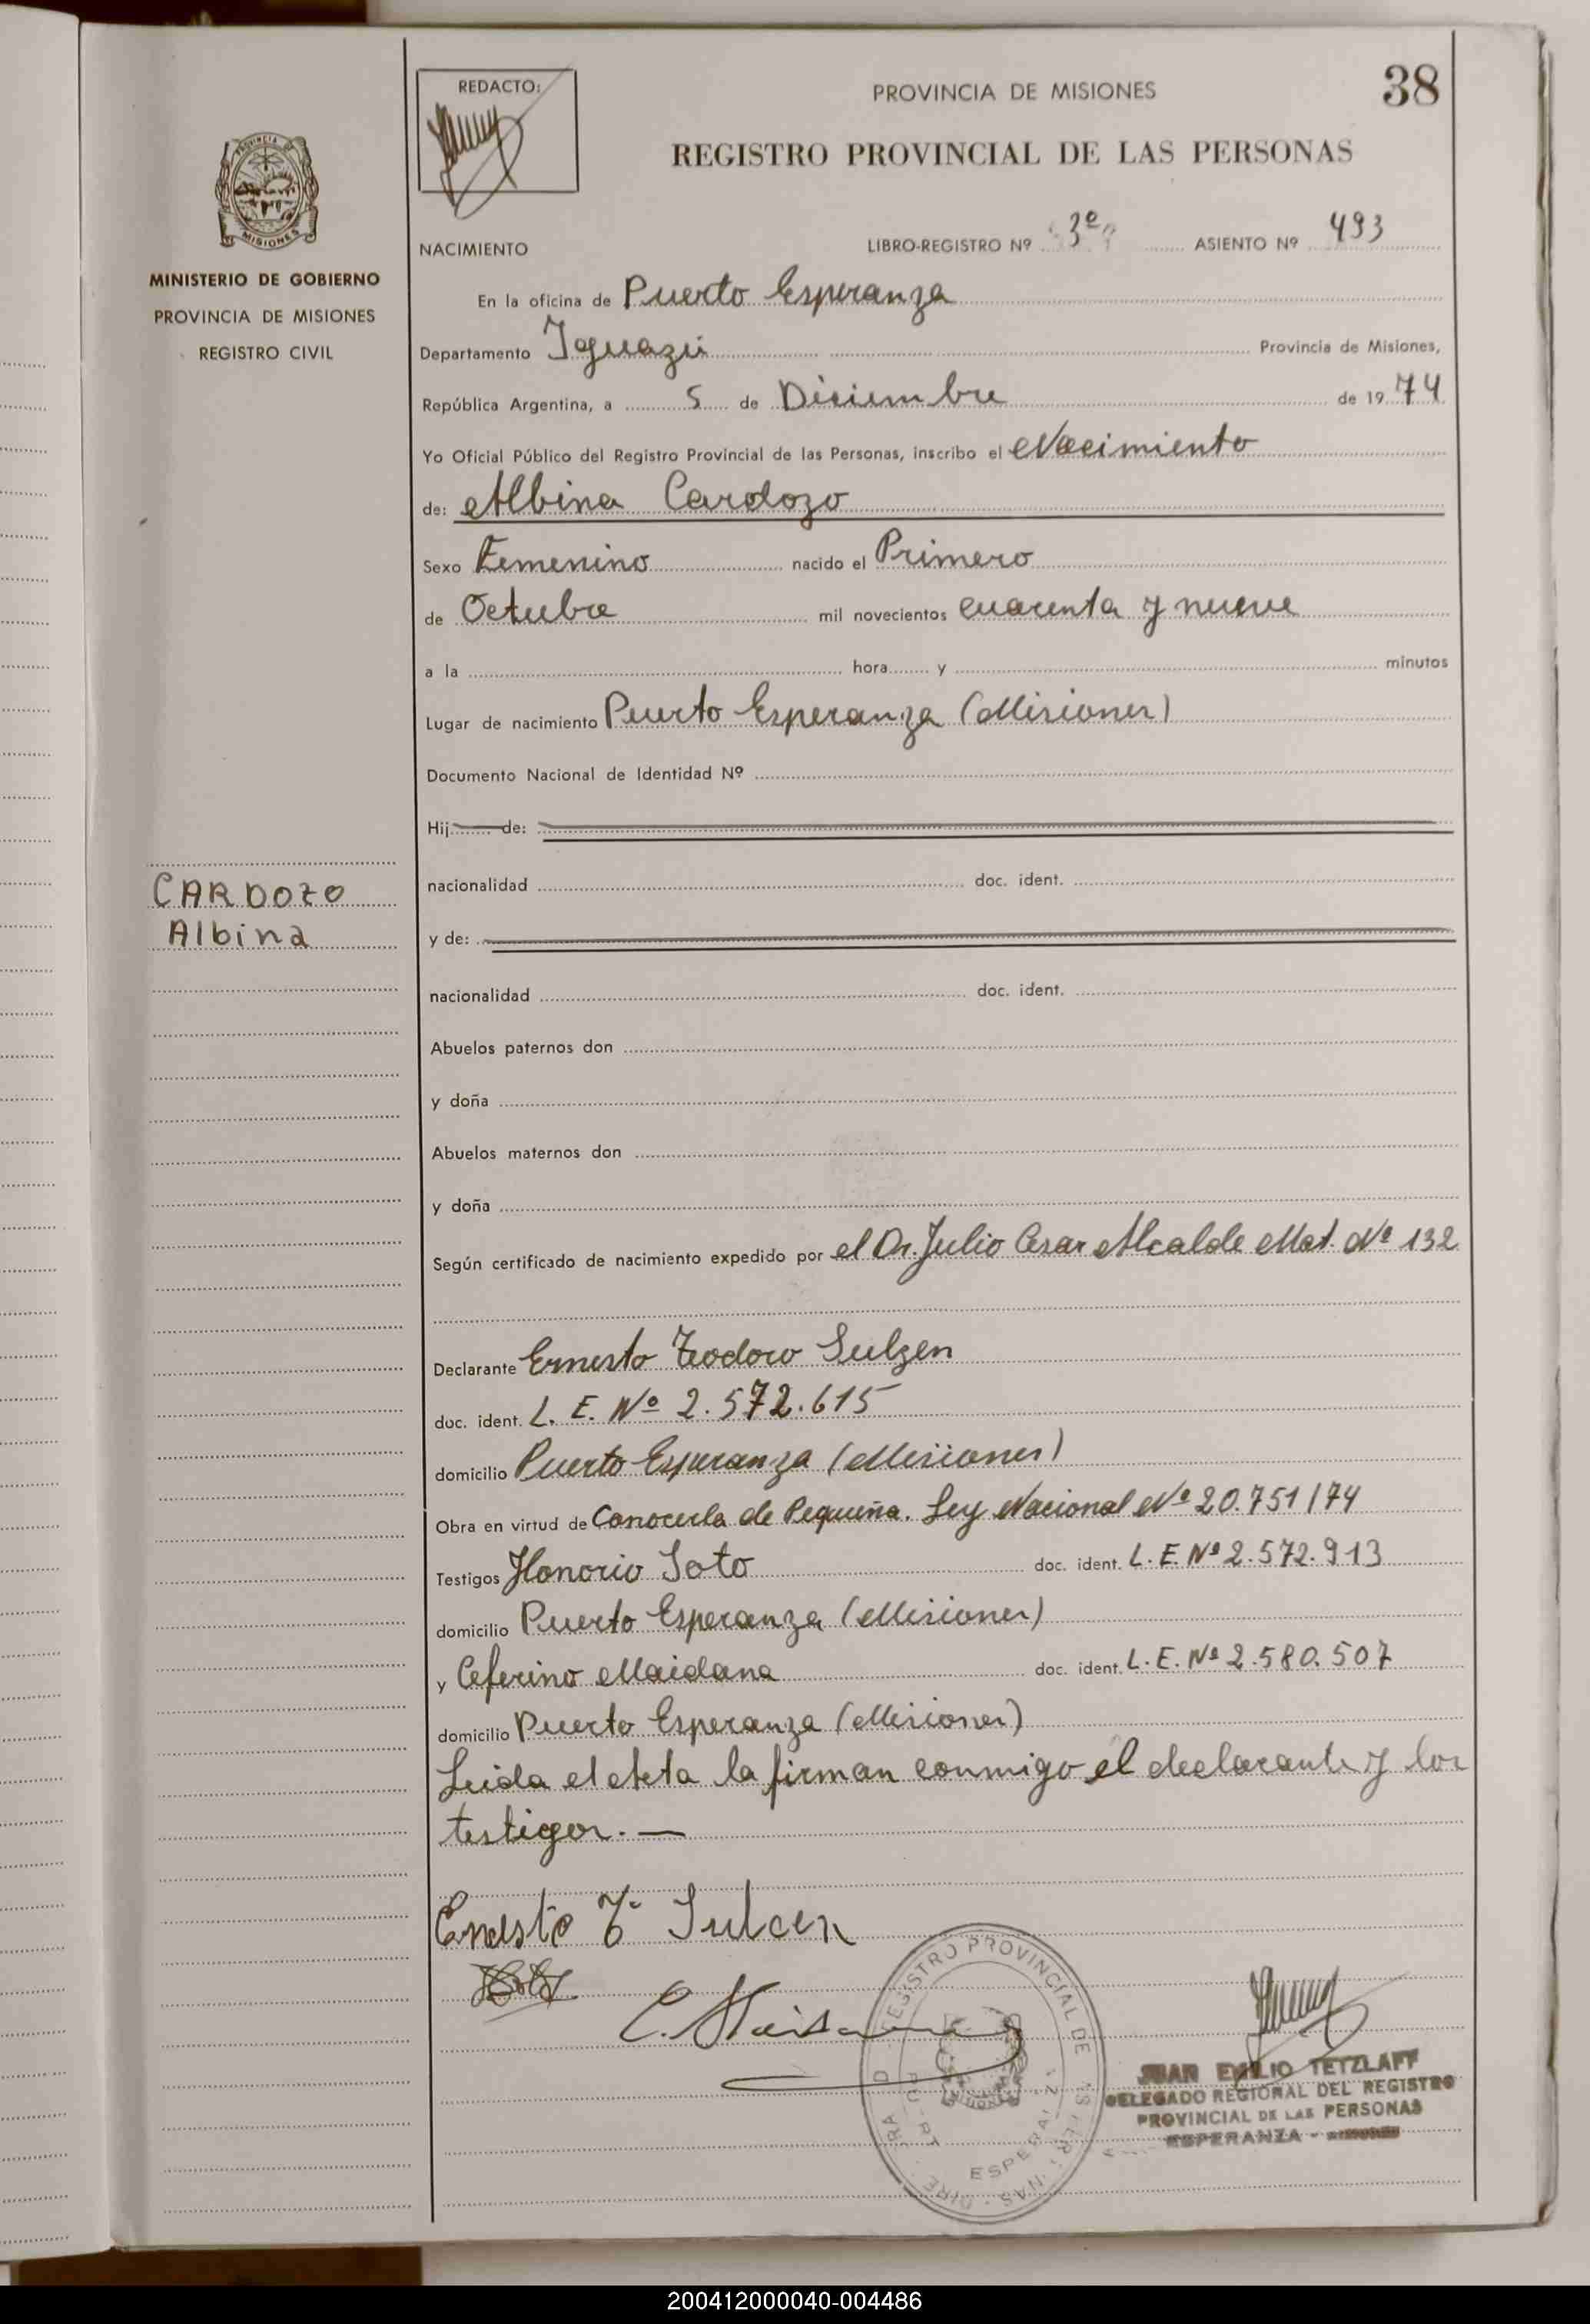 38
REDACTO:
PROVINCIA DE MISIONES
REGISTRO PROVINCIAL DE LAS PERSONAS
MISIONES
MINISTERIO DE GOBIERNO
PROVINCIA DE MISIONES
REGISTRO CIVIL
NACIMIENTO LIBRO-REGISTRO Nº 3º ASIENTO Nº 493
En la oficina de Puerto Esperanza
Departamento Iguazú Provincia de Misiones,
República Argentina, a 5 de Diciembre de 1974
Yo Oficial Público del Registro Provincial de las Personas, inscribo el Nacimiento
de: Albina Cardozo
Sexo Femenino nacido el Primero
de Octubre mil novecientos cuarenta y nueve
a la hora y minutos
Lugar de nacimiento Puerto Esperanza (Misiones)
Documento Nacional de Identidad Nº
Hij de:
CARDOZO
Albina
nacionalidad doc. ident.
y de:
nacionalidad doc. ident.
Abuelos paternos don
y doña
Abuelos maternos don
y doña
Según certificado de nacimiento expedido por el Dr. Julio Cesar Alcalde Mat. Nº 132
Declarante Ernesto Teodoro Sulzen
doc. ident. L. E. Nº 2.572.615
domicilio Puerto Esperanza (Misiones)
Obra en virtud de Conocerla de Pequeña. Ley Nacional Nº 20.751/74
Testigos Honorio Soto doc. ident. L. E. Nº 2.572.913
domicilio Puerto Esperanza (Misiones)
y Ceferino Maidana doc. ident. L. E. Nº 2.580.507
domicilio Puerto Esperanza (Misiones)
Leida el Acta la firman conmigo el declarante y los
testigos. —
Ernesto T. Sulcen
C. Maidana
REGISTRO PROVINCIAL DE
JUAN EMILIO TETZLAFF
DELEGADO REGIONAL DEL REGISTRO
PROVINCIAL DE LAS PERSONAS
ESPERANZA -
200412000040-004486